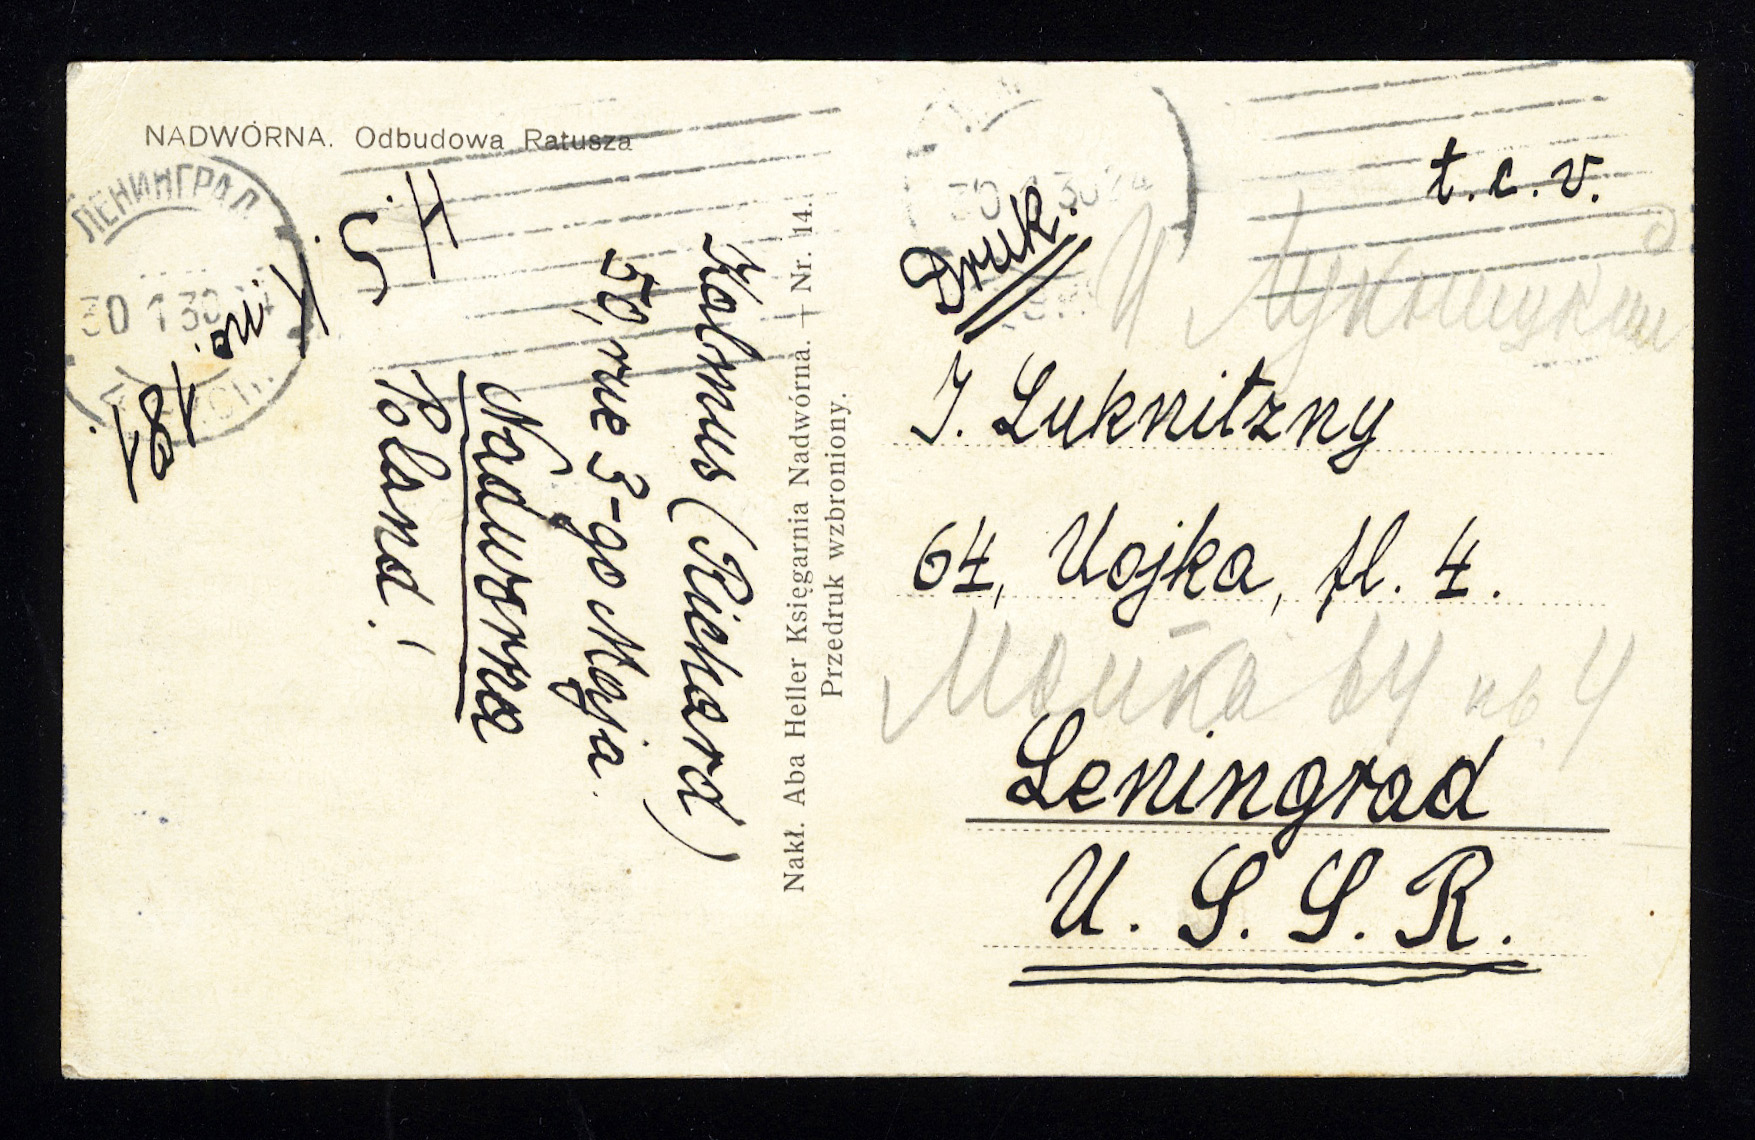 NADWÓRNA. Odbudowa Ratusza
ЛЕНИНГРАД
30 1 30
Kolmus (Richard)
50, rue 3-go Maja.
Nadworna
Poland!
Nakł. Aba Heller Księgarnia Nadwórna. + Nr. 14.
Przedruk wzbroniony.
30 1 30 14
t. c. v.
Druk.
J. Luknitzny
64, Uojka, fl. 4.
Мойка 64 кв 4
Leningrad
U. S. S. R.